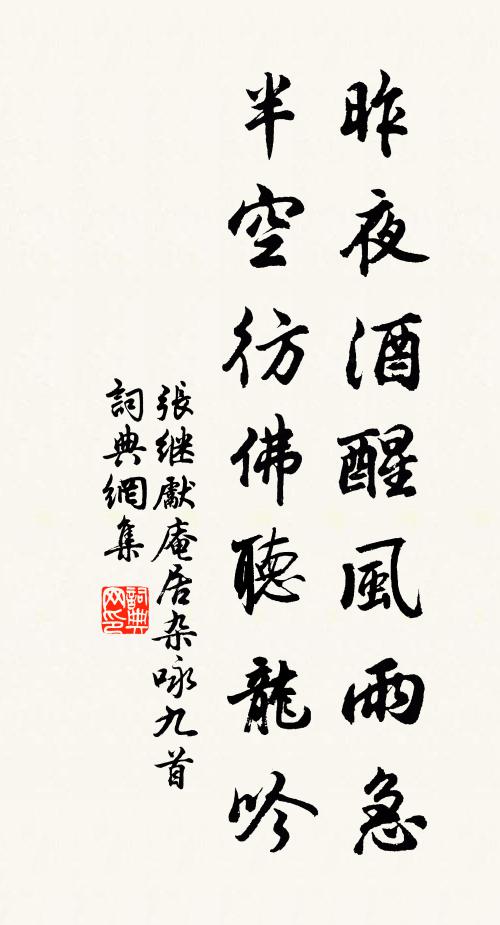 昨夜酒醒風雨急
半空彷佛聽龍吟
張继獻庵居杂咏九首
詞典網集
詞典网印